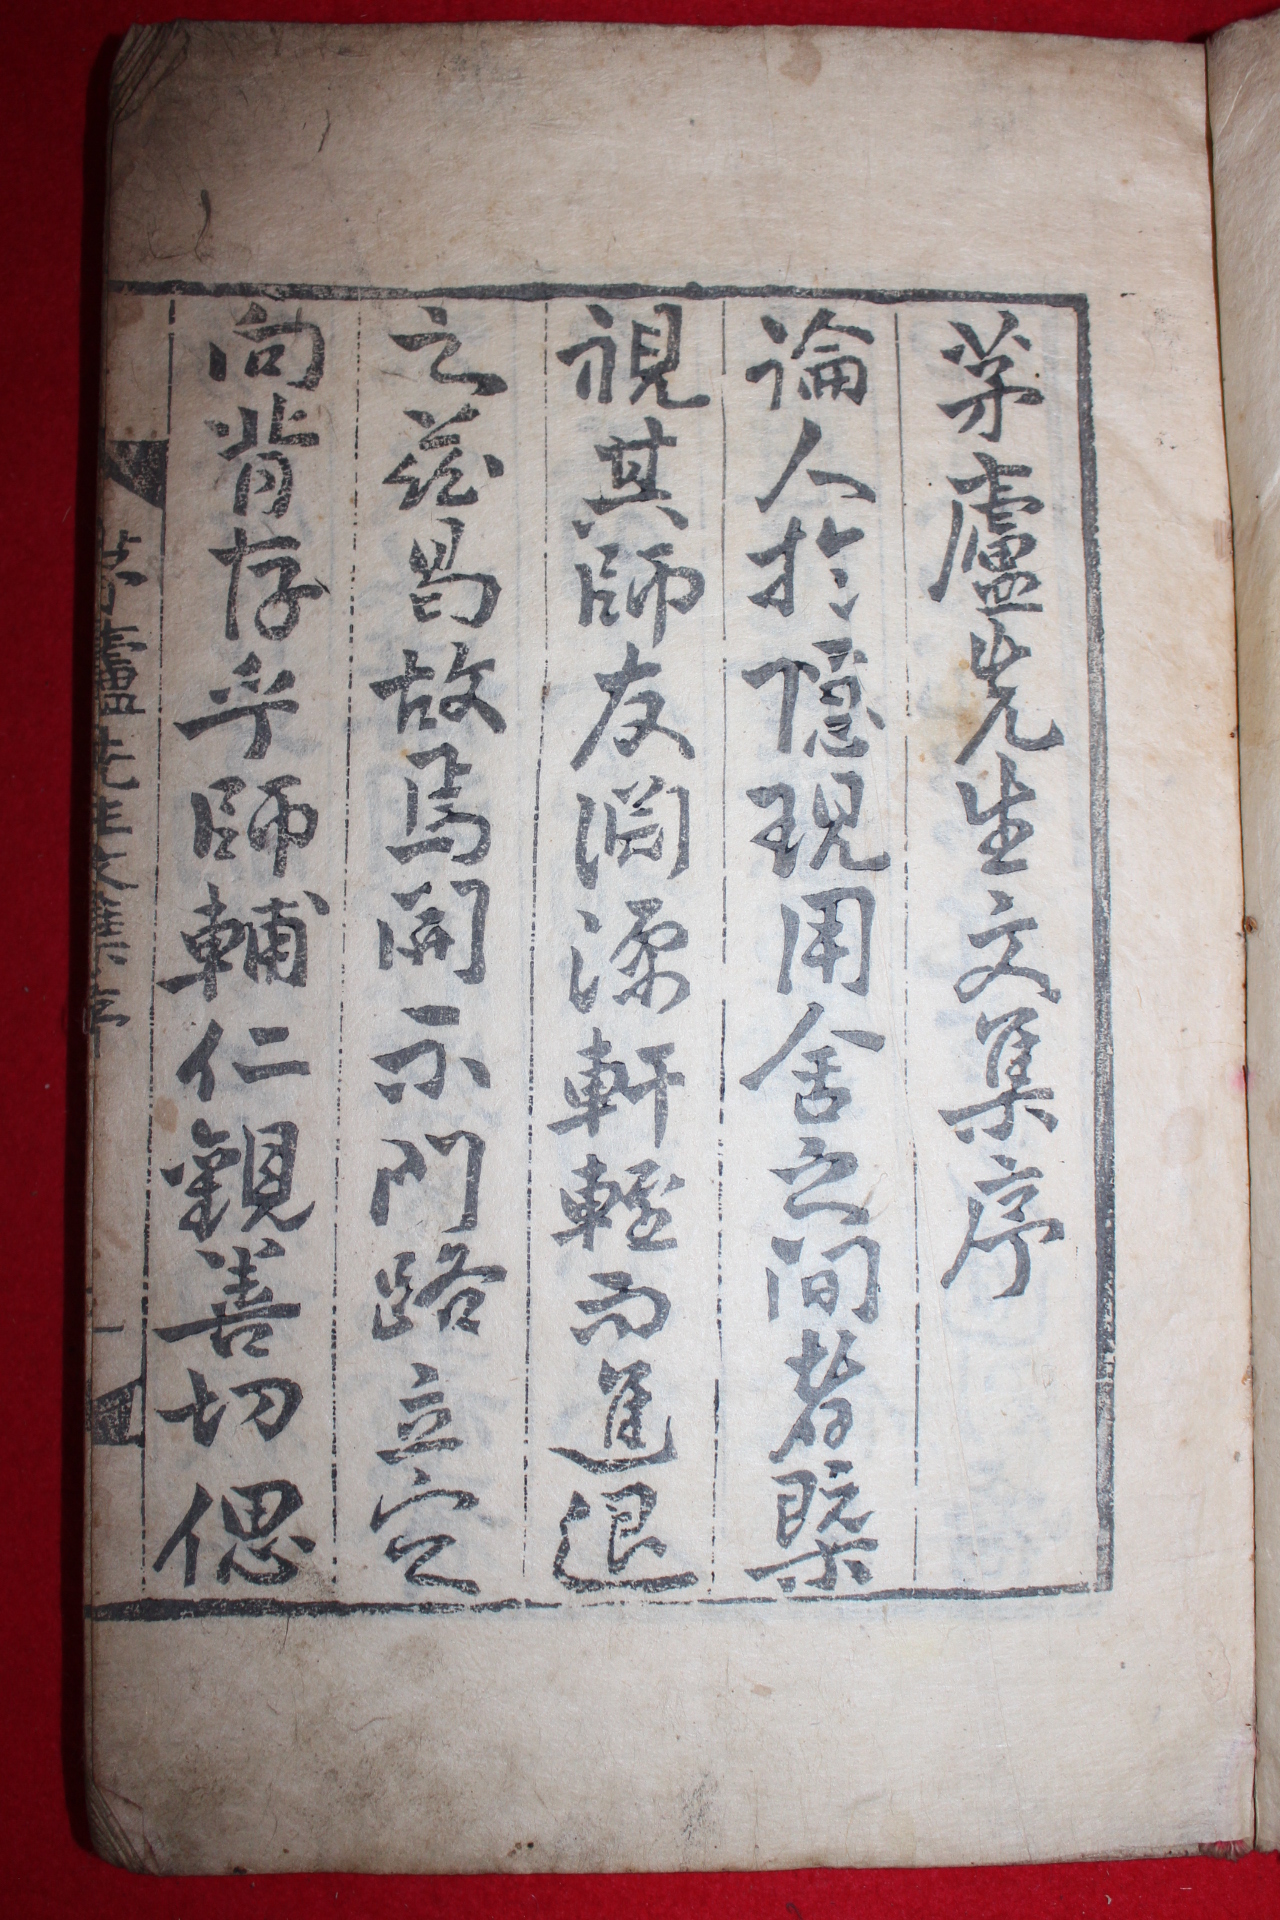 茅廬先生文集序
論人於隱現用舍之間者槩
視其師友淵源軒輊而進退
之茲曷故焉開示門路立定
向背存乎師輔仁觀善切偲
茅廬先生文集序 一